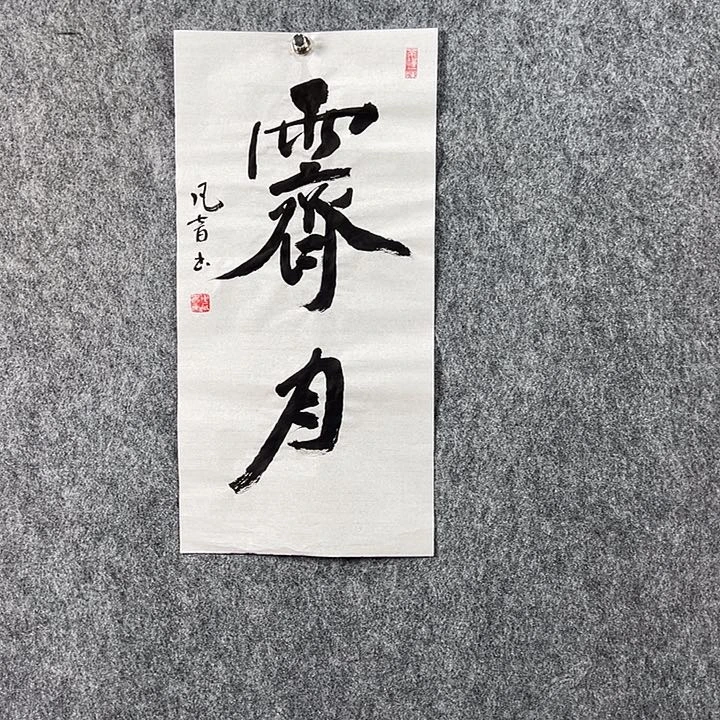 霽月
凡音书